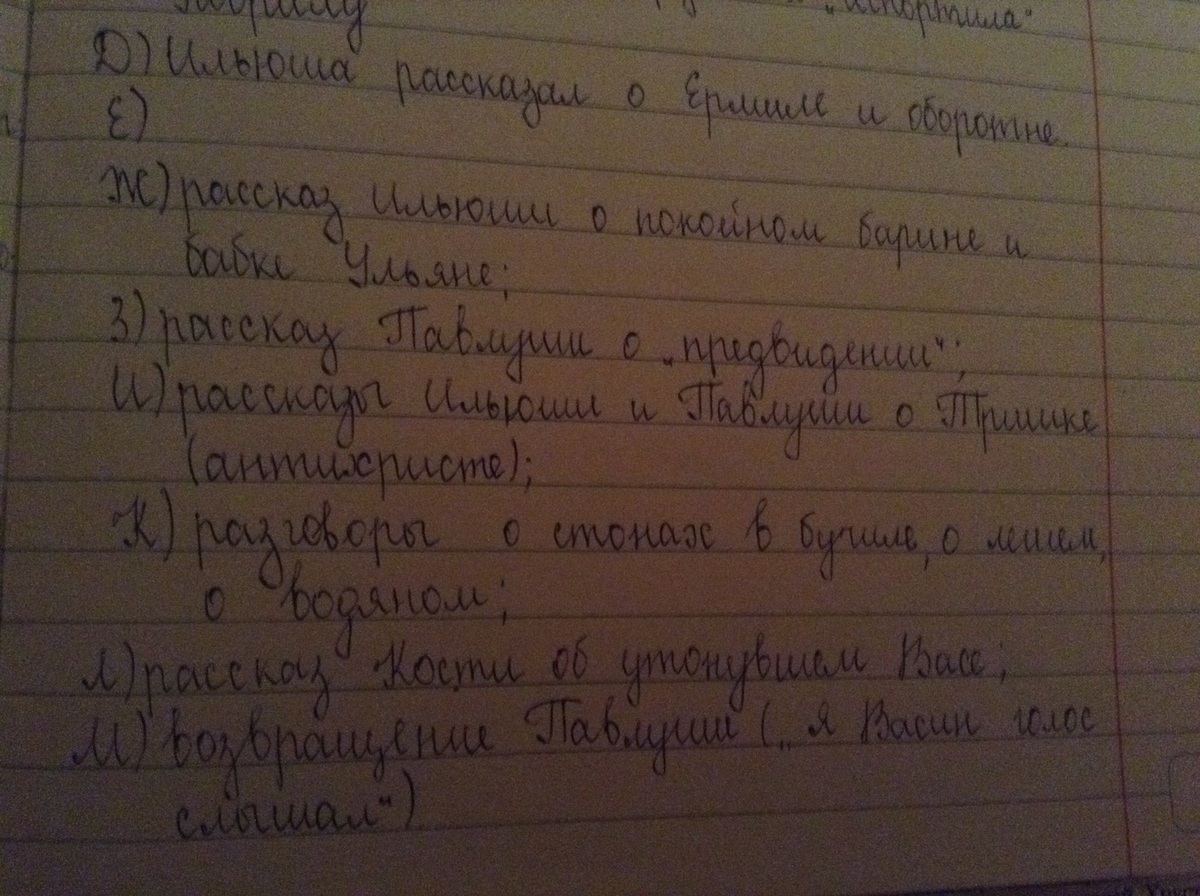 Гаврилу „испортила"
Д) Ильюша рассказал о Ермиле и оборотне.
Е)
Ж) рассказ Ильюши о покойном барине и
бабке Ульяне;
З) рассказ Павлуши о „предвидении";
И) рассказы Ильюши и Павлуши о Тришке
(антихристе);
К) разговоры о стонах в бучиле, о лешем,
о водяном;
Л) рассказ Кости об утонувшем Васе;
М) возвращение Павлуши („я Васин голос
слышал")